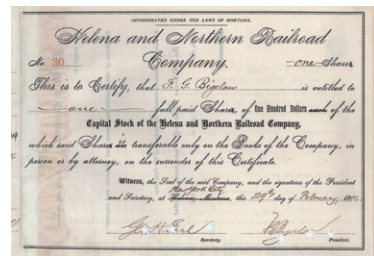 INCORPORATED UNDER THE LAWS OF MONTANA.
Helena and Northern Railroad
Company.
No 30
one Shares
This is to Certify, that F. G. Bigelow is entitled to
one full paid Shares, of One Hundred Dollars each of the
Capital Stock of the Helena and Northern Railroad Company,
which said Shares is transferable only on the Books of the Company, in
person or by attorney, on the surrender of this Certificate.
Witness, the Seal of the said Company, and the signatures of the President
New York City
and Secretary, at Helena, Montana, this 29th day of February
Secretary.
President.